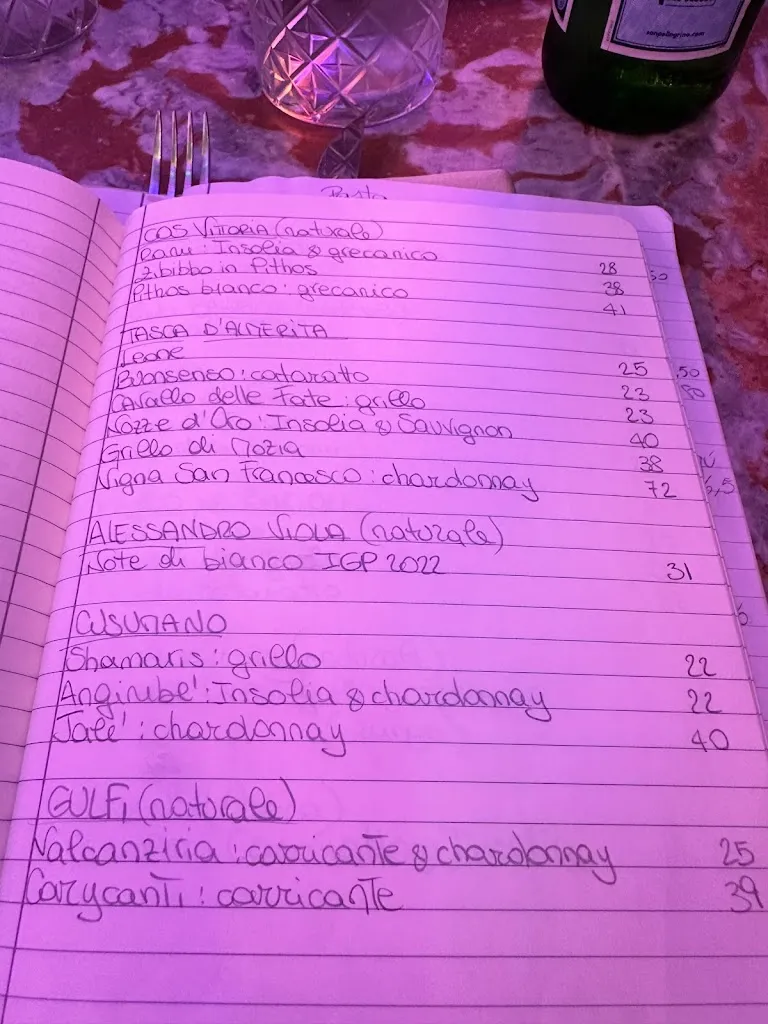 sanpellegrino.com
Pasta
COS VITTORIA (naturale)
Rami: Insolia & grecanico 28
Zibibbo in Pithos 38
Pithos bianco: grecanico 41
TASCA D'ALMERITA
Leone 25
Buonsenso: cataratto 23
Cavallo delle Fate: grillo 23
Nozze d'Oro: Insolia & Sauvignon 40
Grillo di Mozia 38
Vigna San Francesco: chardonnay 72
ALESSANDRO VIOLA (naturale)
Note di bianco IGP 2022 31
CUSUMANO
Shamaris: grillo 22
Angimbe': Insolia & chardonnay 22
Jale': chardonnay 40
GULFI (naturale)
Valcanziria: carricante & chardonnay 25
Carycanti: carricante 39